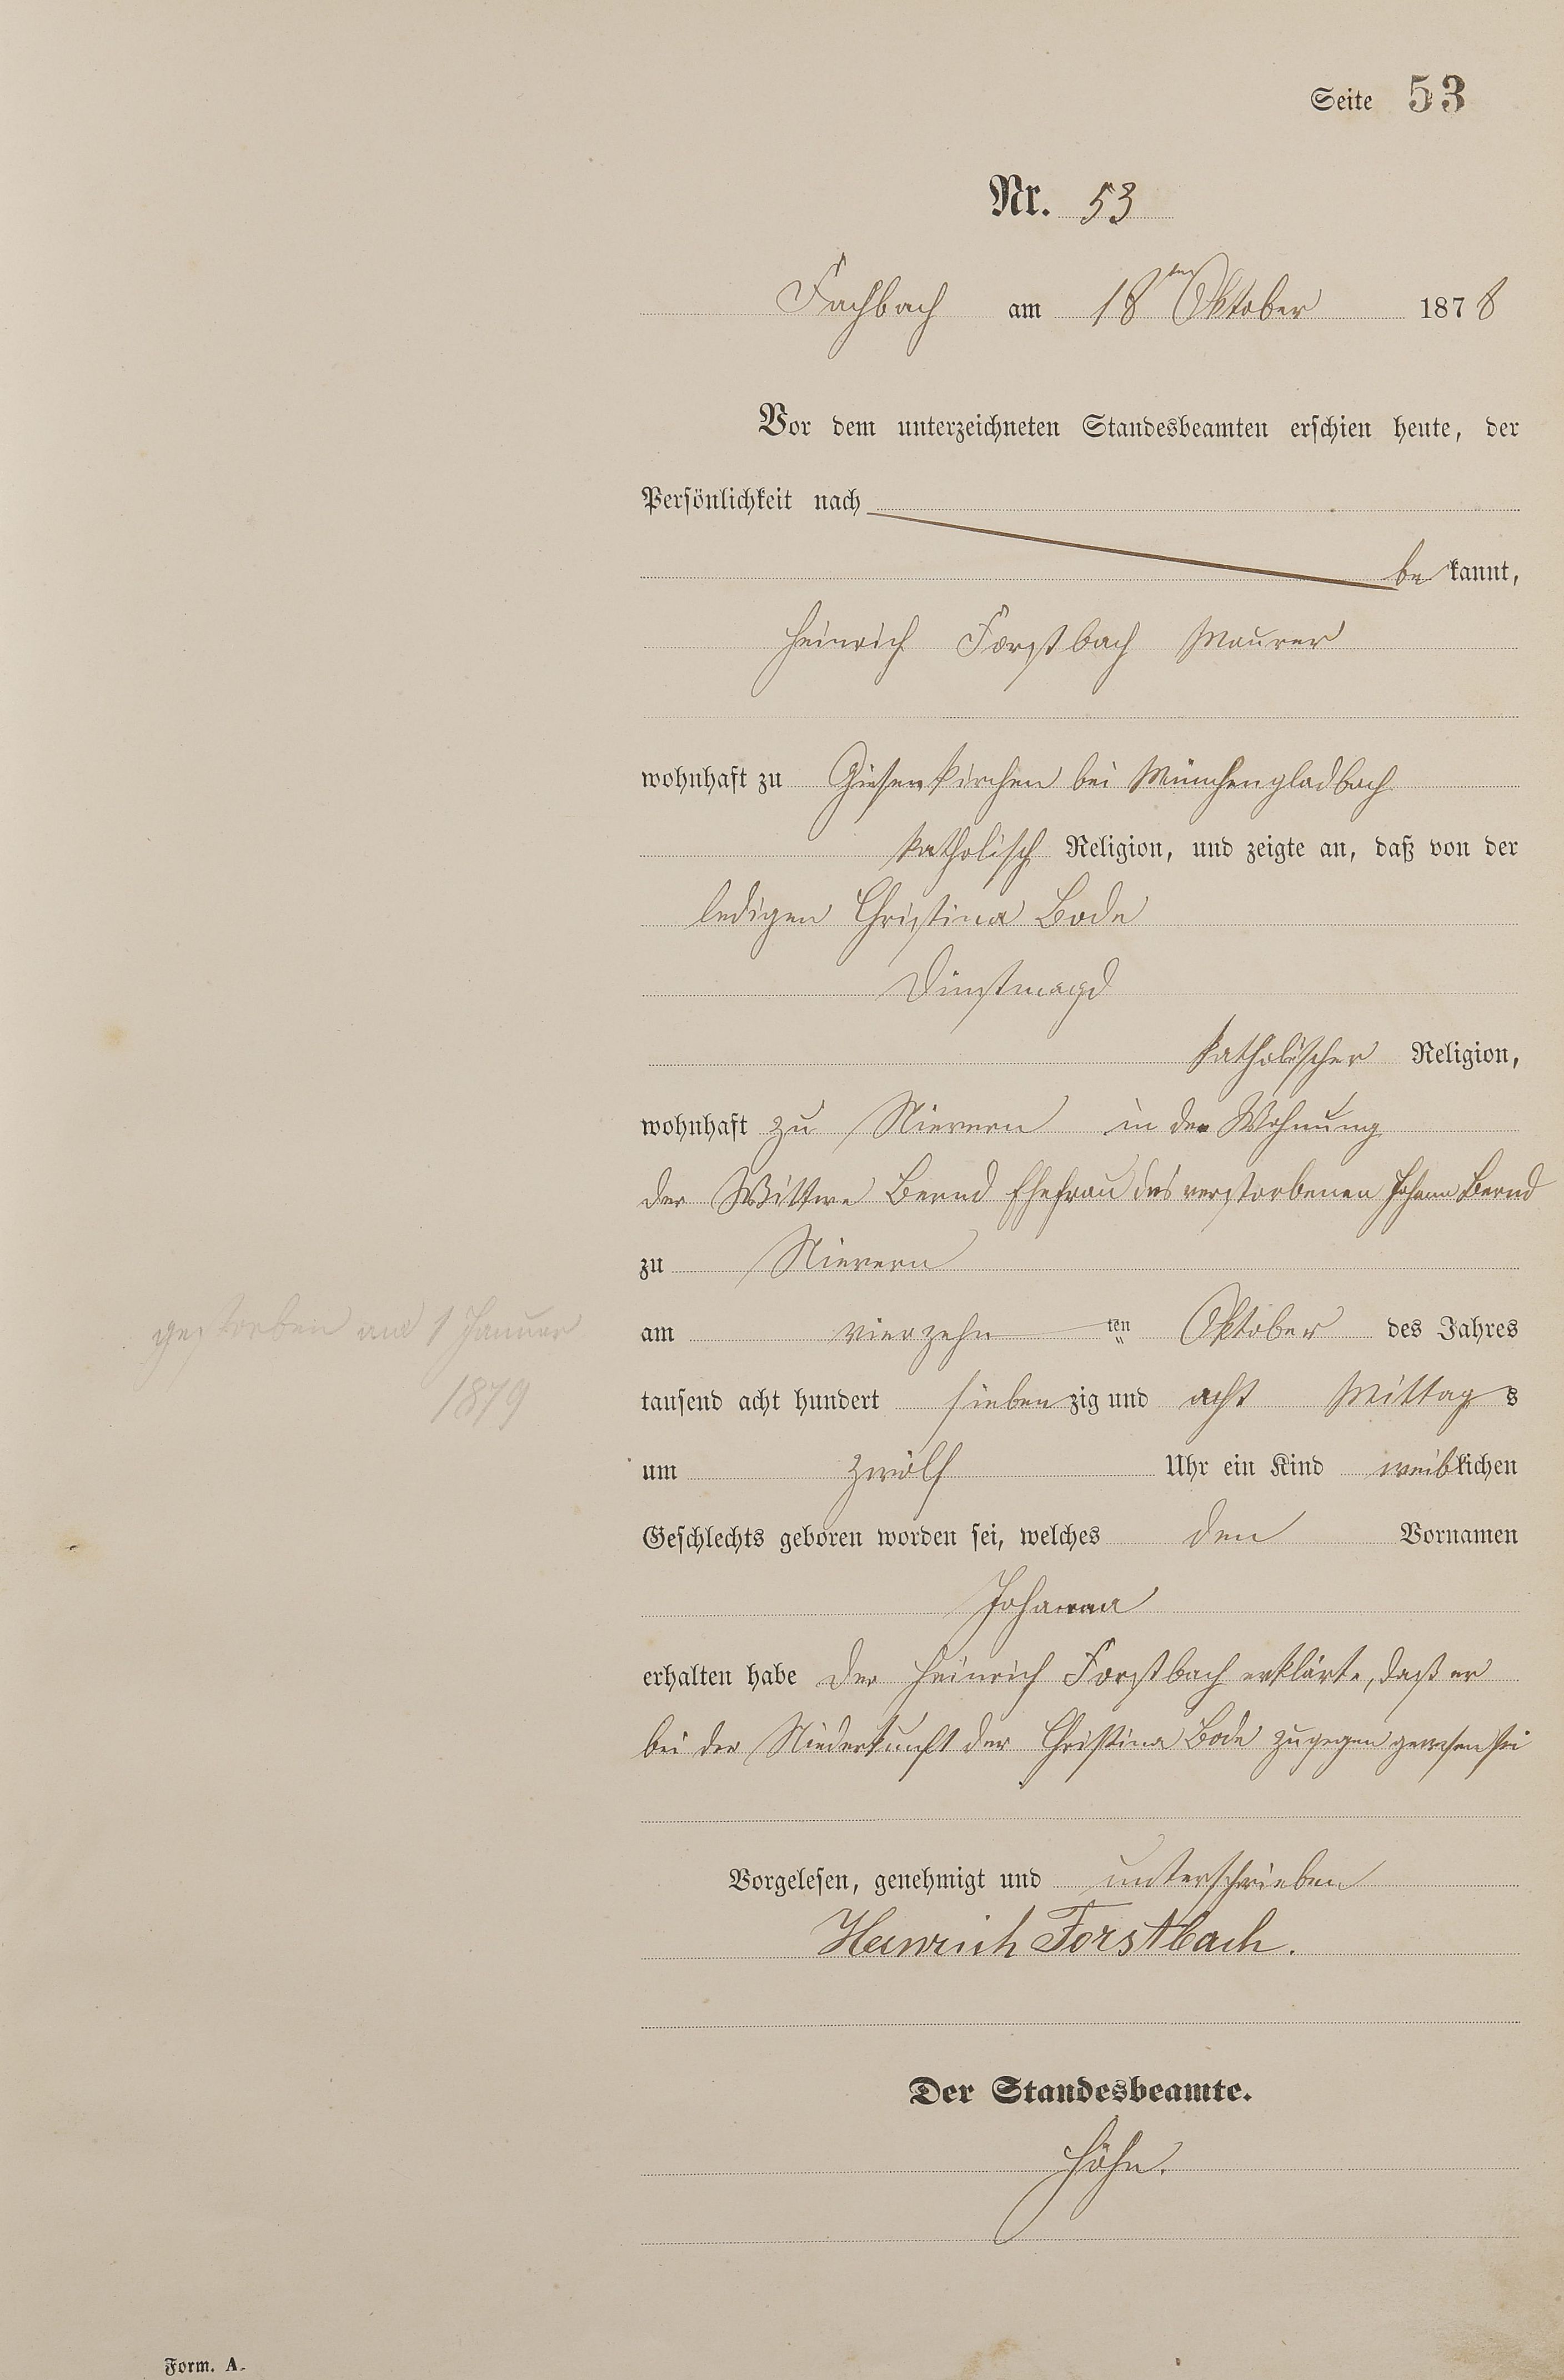 Seite 53
Nr. 53
Fachbach am 18ten Oktober 1878
Vor dem unterzeichneten Standesbeamten erschien heute, der
Persönlichkeit nach
bekannt,
Heinrich Forstbach Maurer
wohnhaft zu Giesenkirchen bei Münchengladbach
katholisch Religion, und zeigte an, daß von der
ledigen Christina Bode
Dienstmagd
katholischer Religion,
wohnhaft zu Nievern in der Wohnung
der Wittwe Bernd Ehefrau des verstorbenen Johann Bernd
zu Nievern
am vierzehnten Oktober des Jahres
gestorben am 1 Januar
1879
tausend acht hundert siebenzig und acht Mittags
um zwölf Uhr ein Kind weiblichen
Geschlechts geboren worden sei, welches den Vornamen
Johanna
erhalten habe Der Heinrich Forstbach erklärte, daß er
bei der Niederkunft der Christina Bode zugegen gewesen sei
Vorgelesen, genehmigt und unterschrieben
Heinrich Forstbach.
Der Standesbeamte.
Höhn.
Form. A.